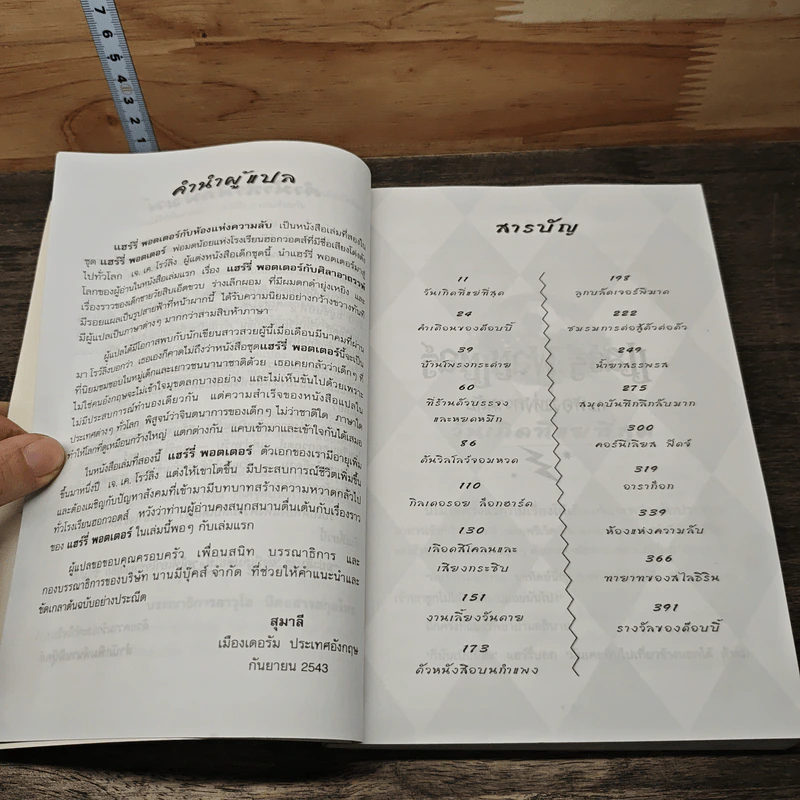 7
6
5
4
3
2
1
คำนำผู้แปล
แฮร์รี่ พอตเตอร์กับห้องแห่งความลับ เป็นหนังสือเล่มที่สองใน
ชุด แฮร์รี่ พอตเตอร์ พ่อมดน้อยแห่งโรงเรียนฮอกวอตส์ที่มีชื่อเสียงโด่งดัง
ไปทั่วโลก เจ.เค. โรว์ลิ่ง ผู้แต่งหนังสือเด็กชุดนี้ นำแฮร์รี่ พอตเตอร์มาสู่
โลกของผู้อ่านในหนังสือเล่มแรก เรื่อง แฮร์รี่ พอตเตอร์กับศิลาอาถรรพ์
เรื่องราวของเด็กชายวัยสิบเอ็ดขวบ ร่างเล็กผอม ที่มีผมดกดำยุ่งเหยิง และ
มีรอยแผลเป็นรูปสายฟ้าที่หน้าผากนี้ ได้รับความนิยมอย่างกว้างขวางทันที
มีผู้แปลเป็นภาษาต่างๆ มากกว่าสามสิบห้าภาษา
ผู้แปลได้มีโอกาสพบกับนักเขียนสาวสวยผู้นี้เมื่อเดือนมีนาคมที่ผ่าน
มา โรว์ลิ่งบอกว่า เธอเองก็คาดไม่ถึงว่าหนังสือชุดแฮร์รี่ พอตเตอร์นี้จะเป็น
ที่นิยมชมชอบในหมู่เด็กและเยาวชนนานาชาติด้วย เธอเคยกลัวว่าเด็กๆ ที่
ไม่ใช่คนอังกฤษจะไม่เข้าใจมุขตลกบางอย่าง และไม่เห็นขันไปด้วยเพราะ
ไม่มีประสบการณ์ทำนองเดียวกัน แต่ความสำเร็จของหนังสือแปลใน
ประเทศต่างๆ ทั่วโลก พิสูจน์ว่าจินตนาการของเด็กๆ ไม่ว่าชาติใด ภาษาใด
ทำให้โลกที่ดูเหมือนกว้างใหญ่ แตกต่างกัน แคบเข้ามาและเข้าใจกันได้เสมอ
ในหนังสือเล่มที่สองนี้ แฮร์รี่ พอตเตอร์ ตัวเอกของเรามีอายุเพิ่ม
ขึ้นมาหนึ่งปี เจ.เค. โรว์ลิ่ง แต่งให้เขาโตขึ้น มีประสบการณ์ชีวิตเพิ่มขึ้น
และต้องเผชิญกับปัญหาสังคมที่เข้ามามีบทบาทสร้างความหวาดกลัวไป
ทั่วโรงเรียนฮอกวอตส์ หวังว่าท่านผู้อ่านคงสนุกสนานตื่นเต้นกับเรื่องราว
ของ แฮร์รี่ พอตเตอร์ ในเล่มนี้พอๆ กับเล่มแรก
ผู้แปลขอขอบคุณครอบครัว เพื่อนสนิท บรรณาธิการ และ
กองบรรณาธิการของบริษัท นานมีบุ๊คส์ จำกัด ที่ช่วยให้คำแนะนำและ
ขัดเกลาต้นฉบับอย่างประณีต
สุมาลี
เมืองเดอรัม ประเทศอังกฤษ
กันยายน 2543
สารบัญ
11
วันเกิดที่แย่ที่สุด
24
คำเตือนของด๊อบบี้
39
บ้านโพรงกระต่าย
60
ที่ร้านตัวบรรจง
และหยดหมึก
86
ต้นวิลโลว์จอมหวด
110
กิลเดอรอย ล็อกฮาร์ต
130
เลือดสีโคลนและ
เสียงกระซิบ
151
งานเลี้ยงวันตาย
173
ตัวหนังสือบนกำแพง
198
ลูกบลัดเจอร์พิฆาต
222
ชมรมการต่อสู้ตัวต่อตัว
249
น้ำยาสรรพรส
275
สมุดบันทึกลึกลับมาก
300
คอร์นีเลียส ฟัดจ์
319
อาราก็อก
339
ห้องแห่งความลับ
366
ทายาทของสไลธิริน
391
รางวัลของด๊อบบี้